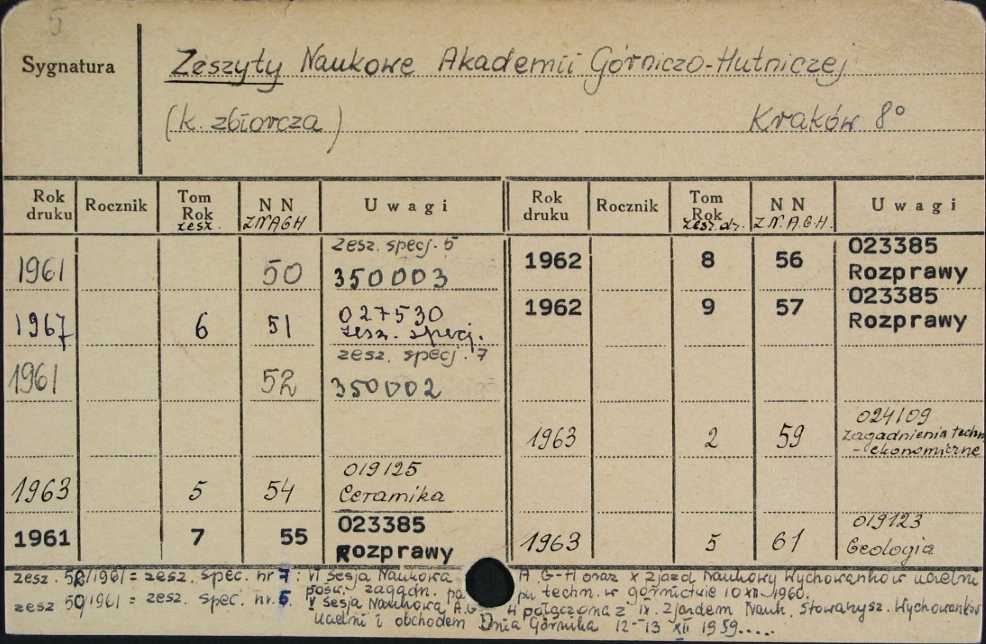 5
Sygnatura
Zeszyty Naukowe Akademii Górniczo-Hutniczej
(k. zbiorcza) Kraków 8°
Rok druku Rocznik Tom Rok zesz. N N ZNAGH Uwagi
1961 50 zesz. specj. 5 350003
1967 6 51 027530 zesz. specj.
1961 52 zesz. specj. 7 350002
1963 5 54 019125 Ceramika
1961 7 55 023385 Rozprawy
Rok druku Rocznik Tom Rok zesz. N N Z.N.A.G.H. Uwagi
1962 8 56 023385 Rozprawy
1962 9 57 023385 Rozprawy
1963 2 59 024109 Zagadnienia techn -ekonomiczne
1963 5 61 019123 Geologia
zesz. 52/1961 = zesz. spec. nr 7 : VI sesja Naukowa A.G-H oraz X Zjazd Naukowy Wychowanków uczelni
pośw. zagadn. techn. w górnictwie 10 XII 1960.
zesz 50/1961 = zesz. spec. nr. 5. V sesja Naukowa A.G-H połączona z IX. Zjazdem Nauk. Stowarzysz. Wychowanków
uczelni i obchodem Dnia Górnika 12-13 XII 1959.....